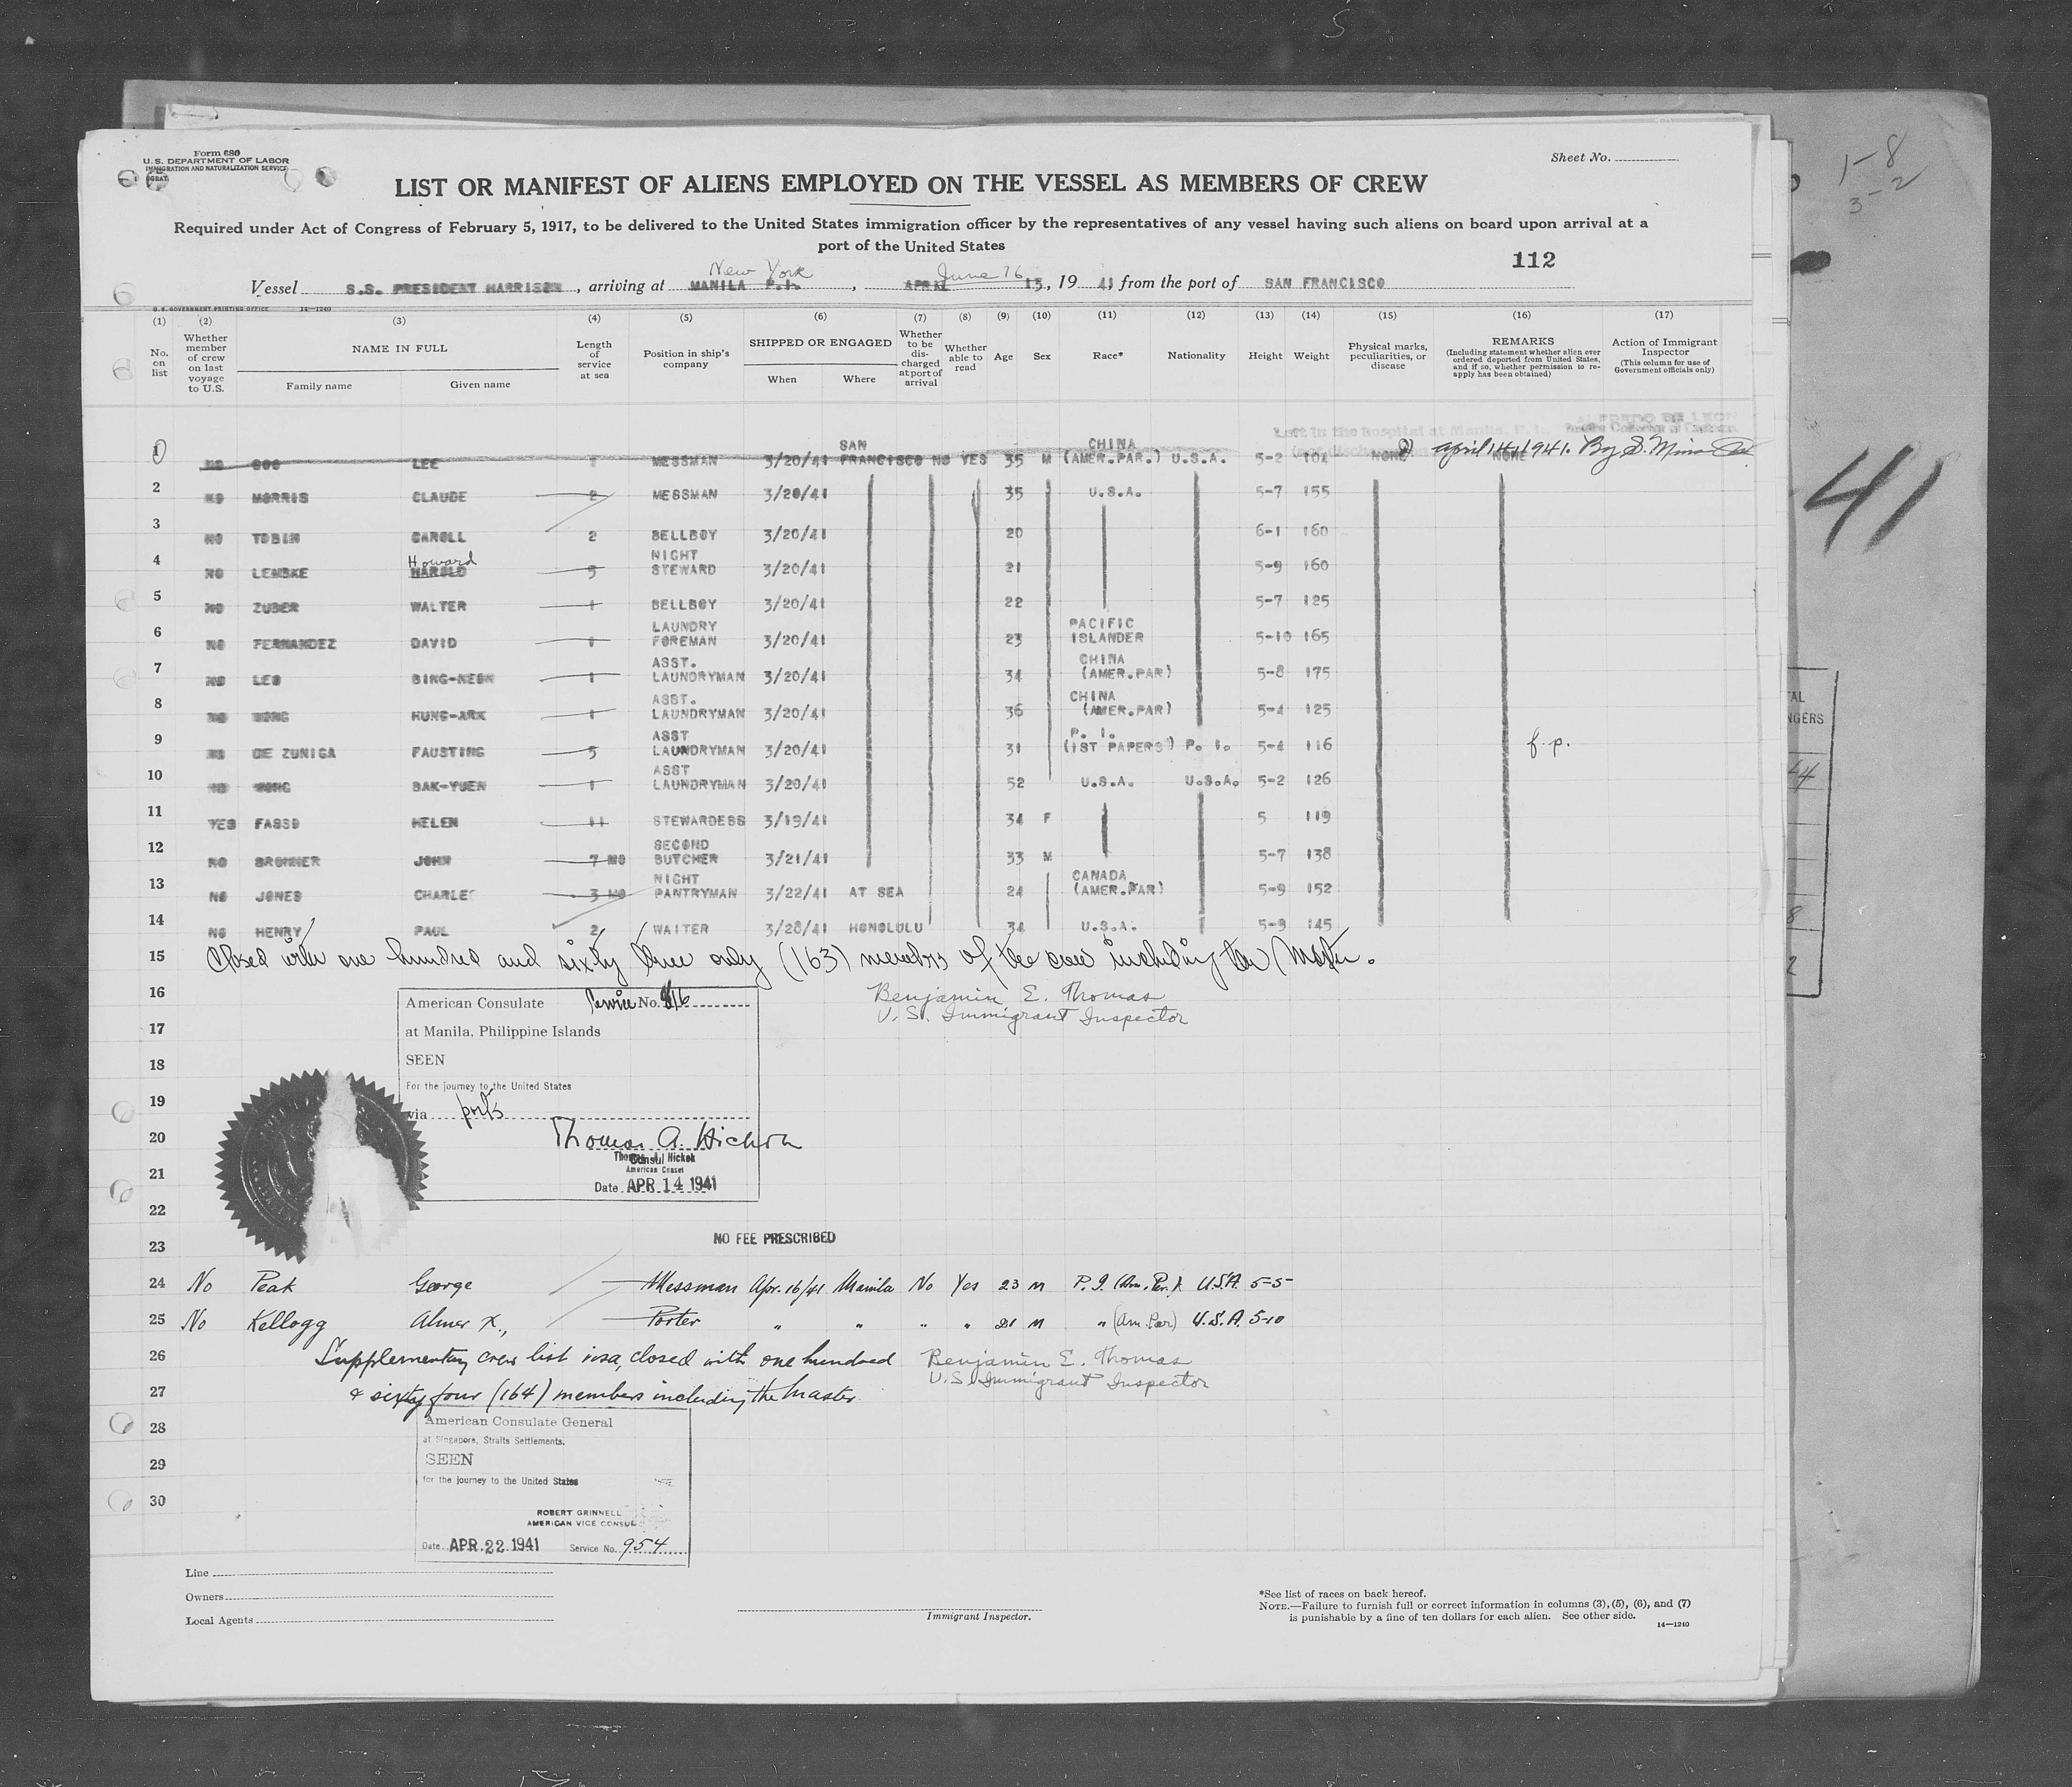 Form 680
U. S. DEPARTMENT OF LABOR
IMMIGRATION AND NATURALIZATION SERVICE
Sheet No.
LIST OR MANIFEST OF ALIENS EMPLOYED ON THE VESSEL AS MEMBERS OF CREW
Required under Act of Congress of February 5, 1917, to be delivered to the United States immigration officer by the representatives of any vessel having such aliens on board upon arrival at a
port of the United States
112
New York June 16
Vessel S.S. PRESIDENT HARRISON, arriving at MANILA P.I., APRIL 15, 19 41 from the port of SAN FRANCISCO
U. S. GOVERNMENT PRINTING OFFICE 14—1240
(1) (2) (3) (4) (5) (6) (7) (8) (9) (10) (11) (12) (13) (14) (15) (16) (17)
No. on list
Whether member of crew on last voyage to U.S.
NAME IN FULL
Family name Given name
Length of service at sea
Position in ship's company
SHIPPED OR ENGAGED
When Where
Whether to be discharged at port of arrival
Whether able to read
Age
Sex
Race*
Nationality
Height
Weight
Physical marks, peculiarities, or disease
REMARKS
(Including statement whether alien ever ordered deported from United States, and if so, whether permission to reapply has been obtained)
Action of Immigrant Inspector
(This column for use of Government officials only)
Left in the hospital at Manila, P. I.
april 14, 1941. By S.
1 LEE MESSMAN 3/20/41 SAN FRANCISCO NO YES 35 M CHINA (AMER.PAR.) U.S.A. 5-2 104 NONE NONE
2 NO MORRIS CLAUDE 2 MESSMAN 3/20/41 35 U.S.A. 5-7 155
3 NO TOBIN CAROLL 2 BELLBOY 3/20/41 20 6-1 160
Howard
4 NO LEMBKE HAROLD 5 NIGHT STEWARD 3/20/41 21 5-9 160
5 NO ZUBER WALTER 1 BELLBOY 3/20/41 22 5-7 125
6 NO FERNANDEZ DAVID 1 LAUNDRY FOREMAN 3/20/41 23 PACIFIC ISLANDER 5-10 165
7 NO LEO BING-NEON 1 ASST. LAUNDRYMAN 3/20/41 34 CHINA (AMER.PAR) 5-8 175
8 NO WONG HUNG-ARK 1 ASST. LAUNDRYMAN 3/20/41 36 CHINA (AMER.PAR) 5-4 125
9 NO DE ZUNIGA FAUSTINO 5 ASST LAUNDRYMAN 3/20/41 31 P. I. (1ST PAPERS) P. I. 5-4 116 f.p.
10 NO WONG BAK-YUEN 1 ASST LAUNDRYMAN 3/20/41 52 U.S.A. U.S.A. 5-2 126
11 YES FASSO HELEN 11 STEWARDESS 3/19/41 34 F 5 119
12 NO BRONNER JOHN 7 MO SECOND BUTCHER 3/21/41 33 M 5-7 138
13 NO JONES CHARLES 3 MO NIGHT PANTRYMAN 3/22/41 AT SEA 24 CANADA (AMER.PAR) 5-9 152
14 NO HENRY PAUL 2 WAITER 3/28/41 HONOLULU 34 U.S.A. 5-9 145
15 Closed with one hundred and sixty three only (163) members of the crew including the Master.
16 Benjamin E. Thomas
17 U.S. Immigrant Inspector
American Consulate Service No. 816
at Manila, Philippine Islands
SEEN
For the journey to the United States
via ports
Thomas A. Hickok
Thomas A. Hickok
Consul
Date APR 14 1941
18
19
20
21
22
23 NO FEE PRESCRIBED
24 No Peak George Messman Apr. 16/41 Manila No Yes 23 M P.I. (Am. Par.) U.S.A. 5-5
25 No Kellogg Almer X., Porter " " " " 21 M " (Am. Par) U.S.A. 5-10
26 Supplementary crew list visa, closed with one hundred Benjamin E. Thomas
27 & sixty four (164) members including the Master. U.S. Immigrant Inspector
28
29
30
American Consulate General
at Singapore, Straits Settlements.
SEEN
for the journey to the United States
ROBERT GRINNELL
AMERICAN VICE CONSUL
Date APR. 22 1941 Service No. 954
Line
Owners
Local Agents
Immigrant Inspector.
*See list of races on back hereof.
NOTE.—Failure to furnish full or correct information in columns (3), (5), (6), and (7)
is punishable by a fine of ten dollars for each alien. See other side.
14—1240
1-8
3-2
41
44
8
2